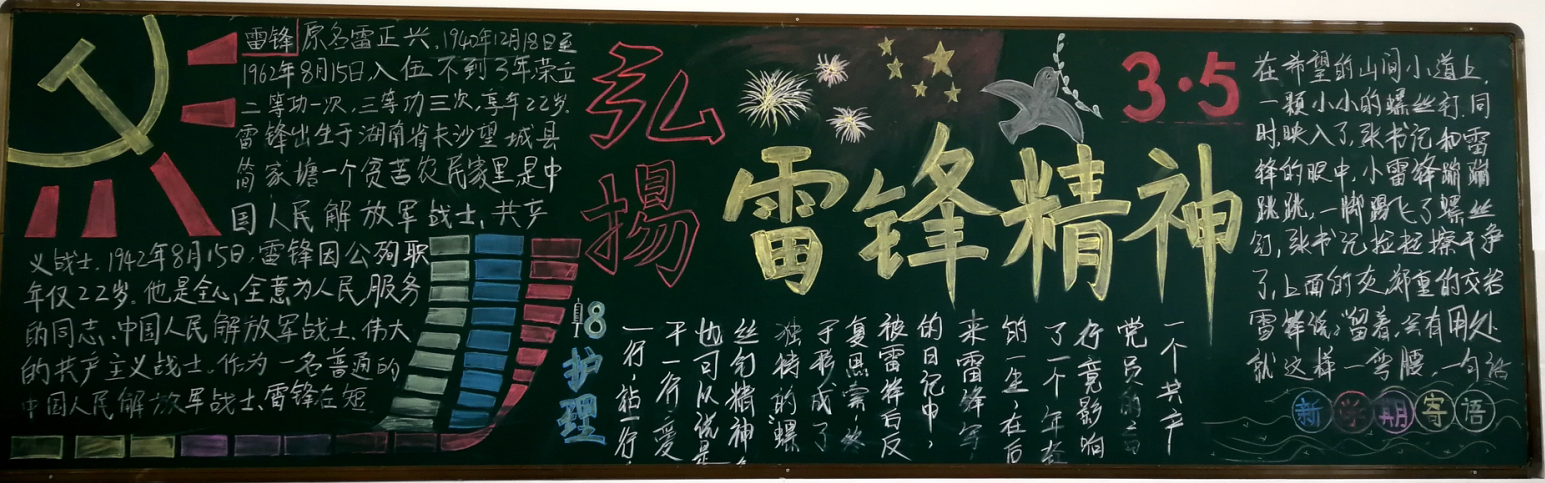 雷锋 原名雷正兴,1940年12月18日至
1962年8月15日,入伍不到3年荣立
二等功一次,三等功三次,享年22岁.
雷锋出生于湖南省长沙望城县
简家塘一个贫苦农民家里,是中
国人民解放军战士、共产
义战士.1942年8月15日,雷锋因公殉职
年仅22岁.他是全心全意为人民服务
的同志.中国人民解放军战士.伟大
的共产主义战士.作为一名普通的
中国人民解放军战士,雷锋在短
弘揚
雷锋精神
3·5
18护理
一个共产
党员的
行竟影响
了一个年轻
的一生,在后
来雷锋写
的日记中,
被雷锋后反
复思索
于形成了
独特的螺
丝钉精神
也可以说是
干一行,爱
一行,钻一行,
在希望的山间小道上,
一颗小小的螺丝钉.同
时映入了张书记和雷
锋的眼中,小雷锋蹦蹦
跳跳,一脚踢飞了螺丝
钉,张书记捡起擦干净
了,上面的灰郑重的交给
雷锋说:留着,会有用处
就这样一弯腰,一句话
新学期寄语